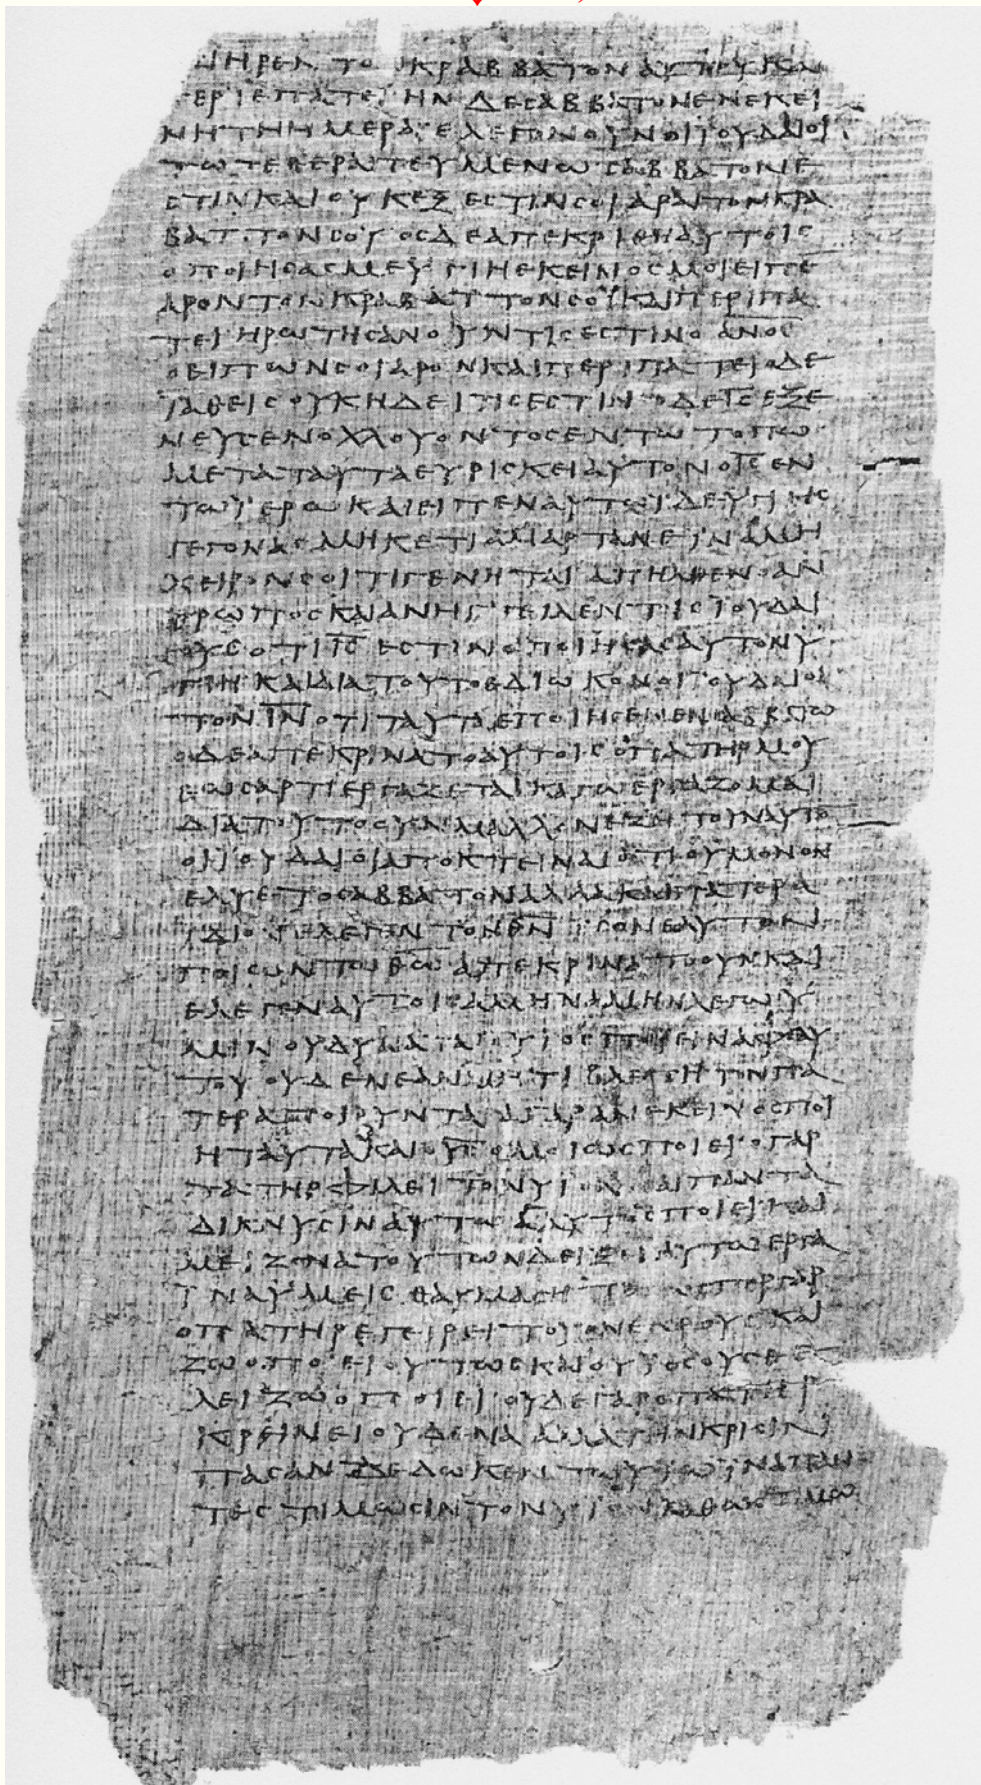 ΗΡΕΝ ΤΟΝ ΚΡΑΒΒΑΤΟΝ ΑΥΤΟΥ ΚΑΙ
ΠΕΡΙΕΠΑΤΕΙ ΗΝ ΔΕ ϹΑΒΒΑΤΟΝ ΕΝ ΕΚΕΙ
ΝΗ ΤΗ ΗΜΕΡΑ ΕΛΕΓΟΝ ΟΥΝ ΟΙ ΙΟΥΔΑΙΟΙ
ΤΩ ΤΕΘΕΡΑΠΕΥΜΕΝΩ ϹΑΒΒΑΤΟΝ Ε
ϹΤΙΝ ΚΑΙ ΟΥΚ ΕΞΕϹΤΙΝ ϹΟΙ ΑΡΑΙ ΤΟΝ ΚΡΑ
ΒΑΤΤΟΝ ϹΟΥ ΟϹ ΔΕ ΑΠΕΚΡΙΘΗ ΑΥΤΟΙϹ
Ο ΠΟΙΗϹΑϹ ΜΕ ΥΓΙΗ ΕΚΕΙΝΟϹ ΜΟΙ ΕΙΠΕ
ΑΡΟΝ ΤΟΝ ΚΡΑΒΑΤΤΟΝ ϹΟΥ ΚΑΙ ΠΕΡΙΠΑ
ΤΕΙ ΗΡΩΤΗϹΑΝ ΟΥΝ ΤΙϹ ΕϹΤΙΝ Ο ΑΝΟϹ
Ο ΕΙΠΩΝ ϹΟΙ ΑΡΟΝ ΚΑΙ ΠΕΡΙΠΑΤΕΙ Ο ΔΕ
ΙΑΘΕΙϹ ΟΥΚ ΗΔΕΙ ΤΙϹ ΕϹΤΙΝ Ο ΔΕ ΙϹ ΕΞΕ
ΝΕΥϹΕΝ ΟΧΛΟΥ ΟΝΤΟϹ ΕΝ ΤΩ ΤΟΠΩ
ΜΕΤΑ ΤΑΥΤΑ ΕΥΡΙϹΚΕΙ ΑΥΤΟΝ Ο ΙϹ ΕΝ
ΤΩ ΙΕΡΩ ΚΑΙ ΕΙΠΕΝ ΑΥΤΩ ΙΔΕ ΥΓΙΗϹ
ΓΕΓΟΝΑϹ ΜΗΚΕΤΙ ΑΜΑΡΤΑΝΕ ΙΝΑ ΜΗ
ΧΕΙΡΟΝ ϹΟΙ ΤΙ ΓΕΝΗΤΑΙ ΑΠΗΛΘΕΝ Ο ΑΝ
ΘΡΩΠΟϹ ΚΑΙ ΑΝΗΓΓΕΙΛΕΝ ΤΟΙϹ ΙΟΥΔΑΙ
ΟΙϹ ΟΤΙ ΙϹ ΕϹΤΙΝ Ο ΠΟΙΗϹΑϹ ΑΥΤΟΝ Υ
ΓΙΗ ΚΑΙ ΔΙΑ ΤΟΥΤΟ ΕΔΙΩΚΟΝ ΟΙ ΙΟΥΔΑΙΟΙ
ΤΟΝ ΙΝ ΟΤΙ ΤΑΥΤΑ ΕΠΟΙΗϹΕΝ ΕΝ ϹΑΒΒΑΤΩ
Ο ΔΕ ΑΠΕΚΡΙΝΑΤΟ ΑΥΤΟΙϹ Ο ΠΑΤΗΡ ΜΟΥ
ΕΩϹ ΑΡΤΙ ΕΡΓΑΖΕΤΑΙ ΚΑΓΩ ΕΡΓΑΖΟΜΑΙ
ΔΙΑ ΤΟΥΤΟ ΟΥΝ ΜΑΛΛΟΝ ΕΖΗΤΟΥΝ ΑΥΤΟ
ΟΙ ΙΟΥΔΑΙΟΙ ΑΠΟΚΤΕΙΝΑΙ ΟΤΙ ΟΥ ΜΟΝΟΝ
ΕΛΥΕ ΤΟ ϹΑΒΒΑΤΟΝ ΑΛΛΑ ΚΑΙ ΠΑΤΕΡΑ
ΙΔΙΟΝ ΕΛΕΓΕΝ ΤΟΝ ΘΝ ΙϹΟΝ ΕΑΥΤΟΝ
ΠΟΙΩΝ ΤΩ ΘΩ ΑΠΕΚΡΙΝΑΤΟ ΟΥΝ ΚΑΙ
ΕΛΕΓΕΝ ΑΥΤΟΙϹ ΑΜΗΝ ΑΜΗΝ ΛΕΓΩ Υ
ΜΙΝ ΟΥ ΔΥΝΑΤΑΙ Ο ΥΙΟϹ ΠΟΙΕΙΝ ΑΦ ΕΑΥ
ΤΟΥ ΟΥΔΕΝ ΕΑΝ ΜΗ ΤΙ ΒΛΕΠΗ ΤΟΝ ΠΑ
ΤΕΡΑ ΠΟΙΟΥΝΤΑ Α ΓΑΡ ΑΝ ΕΚΕΙΝΟϹ ΠΟΙ
Η ΤΑΥΤΑ ΚΑΙ Ο ΥϹ ΟΜΟΙΩϹ ΠΟΙΕΙ Ο ΓΑΡ
ΠΑΤΗΡ ΦΙΛΕΙ ΤΟΝ ΥΙΟΝ ΚΑΙ ΠΑΝΤΑ
ΔΙΚΝΥϹΙΝ ΑΥΤΩ Α ΑΥΤΟϹ ΠΟΙΕΙ ΚΑΙ
ΜΕΙΖΟΝΑ ΤΟΥΤΩΝ ΔΕΙΞΕΙ ΑΥΤΩ ΕΡΓΑ
ΙΝΑ ΥΜΕΙϹ ΘΑΥΜΑϹΗΤΕ ΩϹΠΕΡ ΓΑΡ
Ο ΠΑΤΗΡ ΕΓΕΙΡΕΙ ΤΟΥϹ ΝΕΚΡΟΥϹ ΚΑΙ
ΖΩΟΠΟΙΕΙ ΟΥΤΩϹ ΚΑΙ Ο ΥΙΟϹ ΟΥϹ ΘΕ
ΛΕΙ ΖΩΟΠΟΙΕΙ ΟΥΔΕ ΓΑΡ Ο ΠΑΤΗΡ
ΚΡΕΙΝΕΙ ΟΥΔΕΝΑ ΑΛΛΑ ΤΗΝ ΚΡΙϹΙΝ
ΠΑϹΑΝ ΔΕΔΩΚΕΝ ΤΩ ΥΙΩ ΙΝΑ ΠΑΝ
ΤΕϹ ΤΙΜΩϹΙΝ ΤΟΝ ΥΙΟΝ ΚΑΘΩϹ ΤΙΜΩ